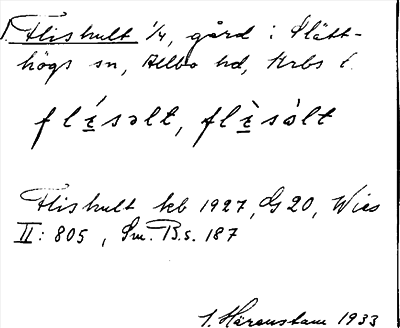 Flishult 1/4, gård i Slätt-
högs sn, Allbo hd, Krbs l.
flɛ́səlt, flɛ̀sə̀lt
Flishult kb 1927, GS 20, Wies
II: 805, Sm. B.s. 187
J. Härenstam 1933